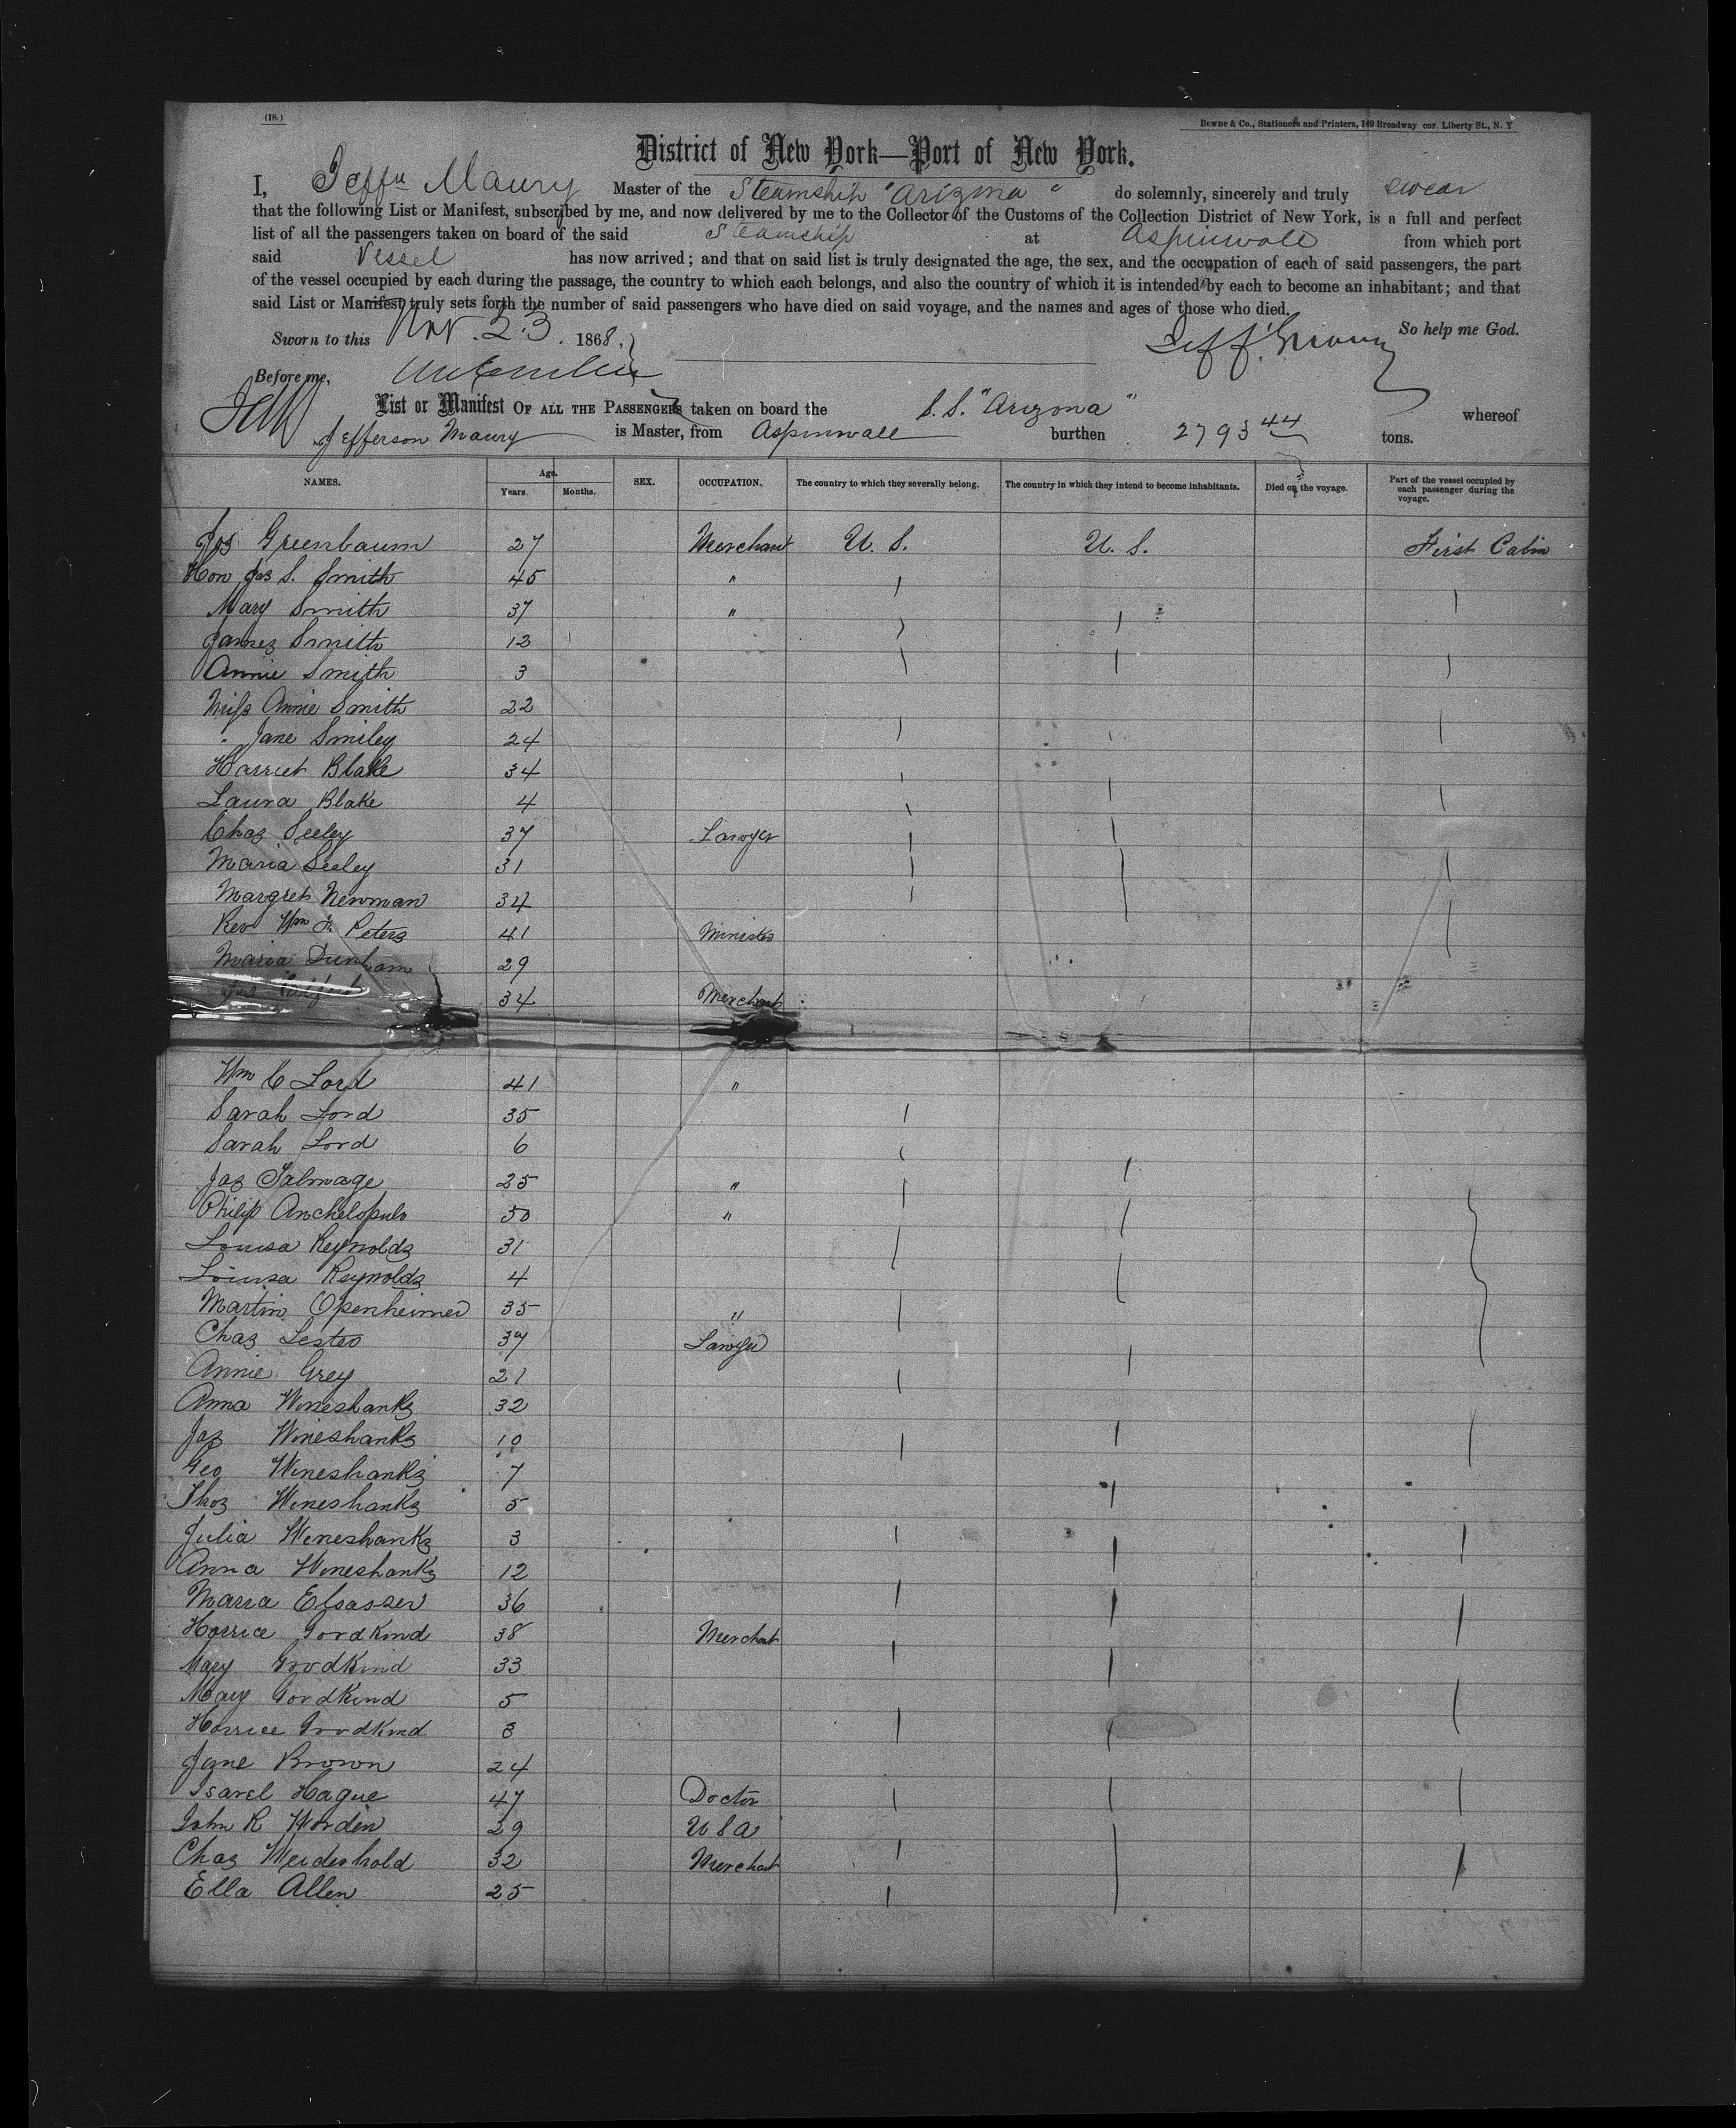 (18.)
Bowne & Co., Stationers and Printers, 149 Broadway cor. Liberty St., N. Y
District of New York—Port of New York.
I, Jeffn Maury Master of the Steamship "Arizona" do solemnly, sincerely and truly swear
that the following List or Manifest, subscribed by me, and now delivered by me to the Collector of the Customs of the Collection District of New York, is a full and perfect
list of all the passengers taken on board of the said Steamship at Aspinwall from which port
said Vessel has now arrived; and that on said list is truly designated the age, the sex, and the occupation of each of said passengers, the part
of the vessel occupied by each during the passage, the country to which each belongs, and also the country of which it is intended by each to become an inhabitant; and that
said List or Manifest truly sets forth the number of said passengers who have died on said voyage, and the names and ages of those who died.
So help me God.
Sworn to this Nov. 23. 1868.
Jeff. Maury
Before me,
List or Manifest OF ALL THE PASSENGERS taken on board the S.S. "Arizona" whereof
Jefferson Maury is Master, from Aspinwall burthen 2793 44 tons.
NAMES. Age. Years. Months. SEX. OCCUPATION. The country to which they severally belong. The country in which they intend to become inhabitants. Died on the voyage. Part of the vessel occupied by each passenger during the voyage.
Jos Greenbaum 27 Merchant U. S. U. S. First Cabin
Hon Jas S. Smith 45 "
Mary Smith 37 "
James Smith 12
Annie Smith 3
Miss Annie Smith 22
" Jane Smiley 24
Harriet Blake 34
Laura Blake 4
Chas Seeley 37 Lawyer
Maria Seeley 31
Margret Newman 34
Rev Wm F. Peters 41 Minister
Maria Dunham 29
34 Merchant
Wm C Lord 41 "
Sarah Lord 35
Sarah Lord 6
Jas Talmage 25 "
Philip Anchelopulo 50 "
Louisa Reynolds 31
Louisa Reynolds 4
Martin Openheimer 35 "
Chas Lester 37 Lawyer
Annie Grey 21
Anna Wineshanks 32
Jas Wineshanks 10
Geo Wineshanks 7
Thos Wineshanks 5
Julia Wineshanks 3
Anna Wineshanks 12
Maria Elsasser 36
Horrice Goodkind 38 Merchant
Mary Goodkind 33
Mary Goodkind 5
Horrice Goodkind 3
Jane Brown 24
Isarel Hague 47 Doctor
John R Worden 29 U S A
Chas Weiderhold 32 Merchant
Ella Allen 25